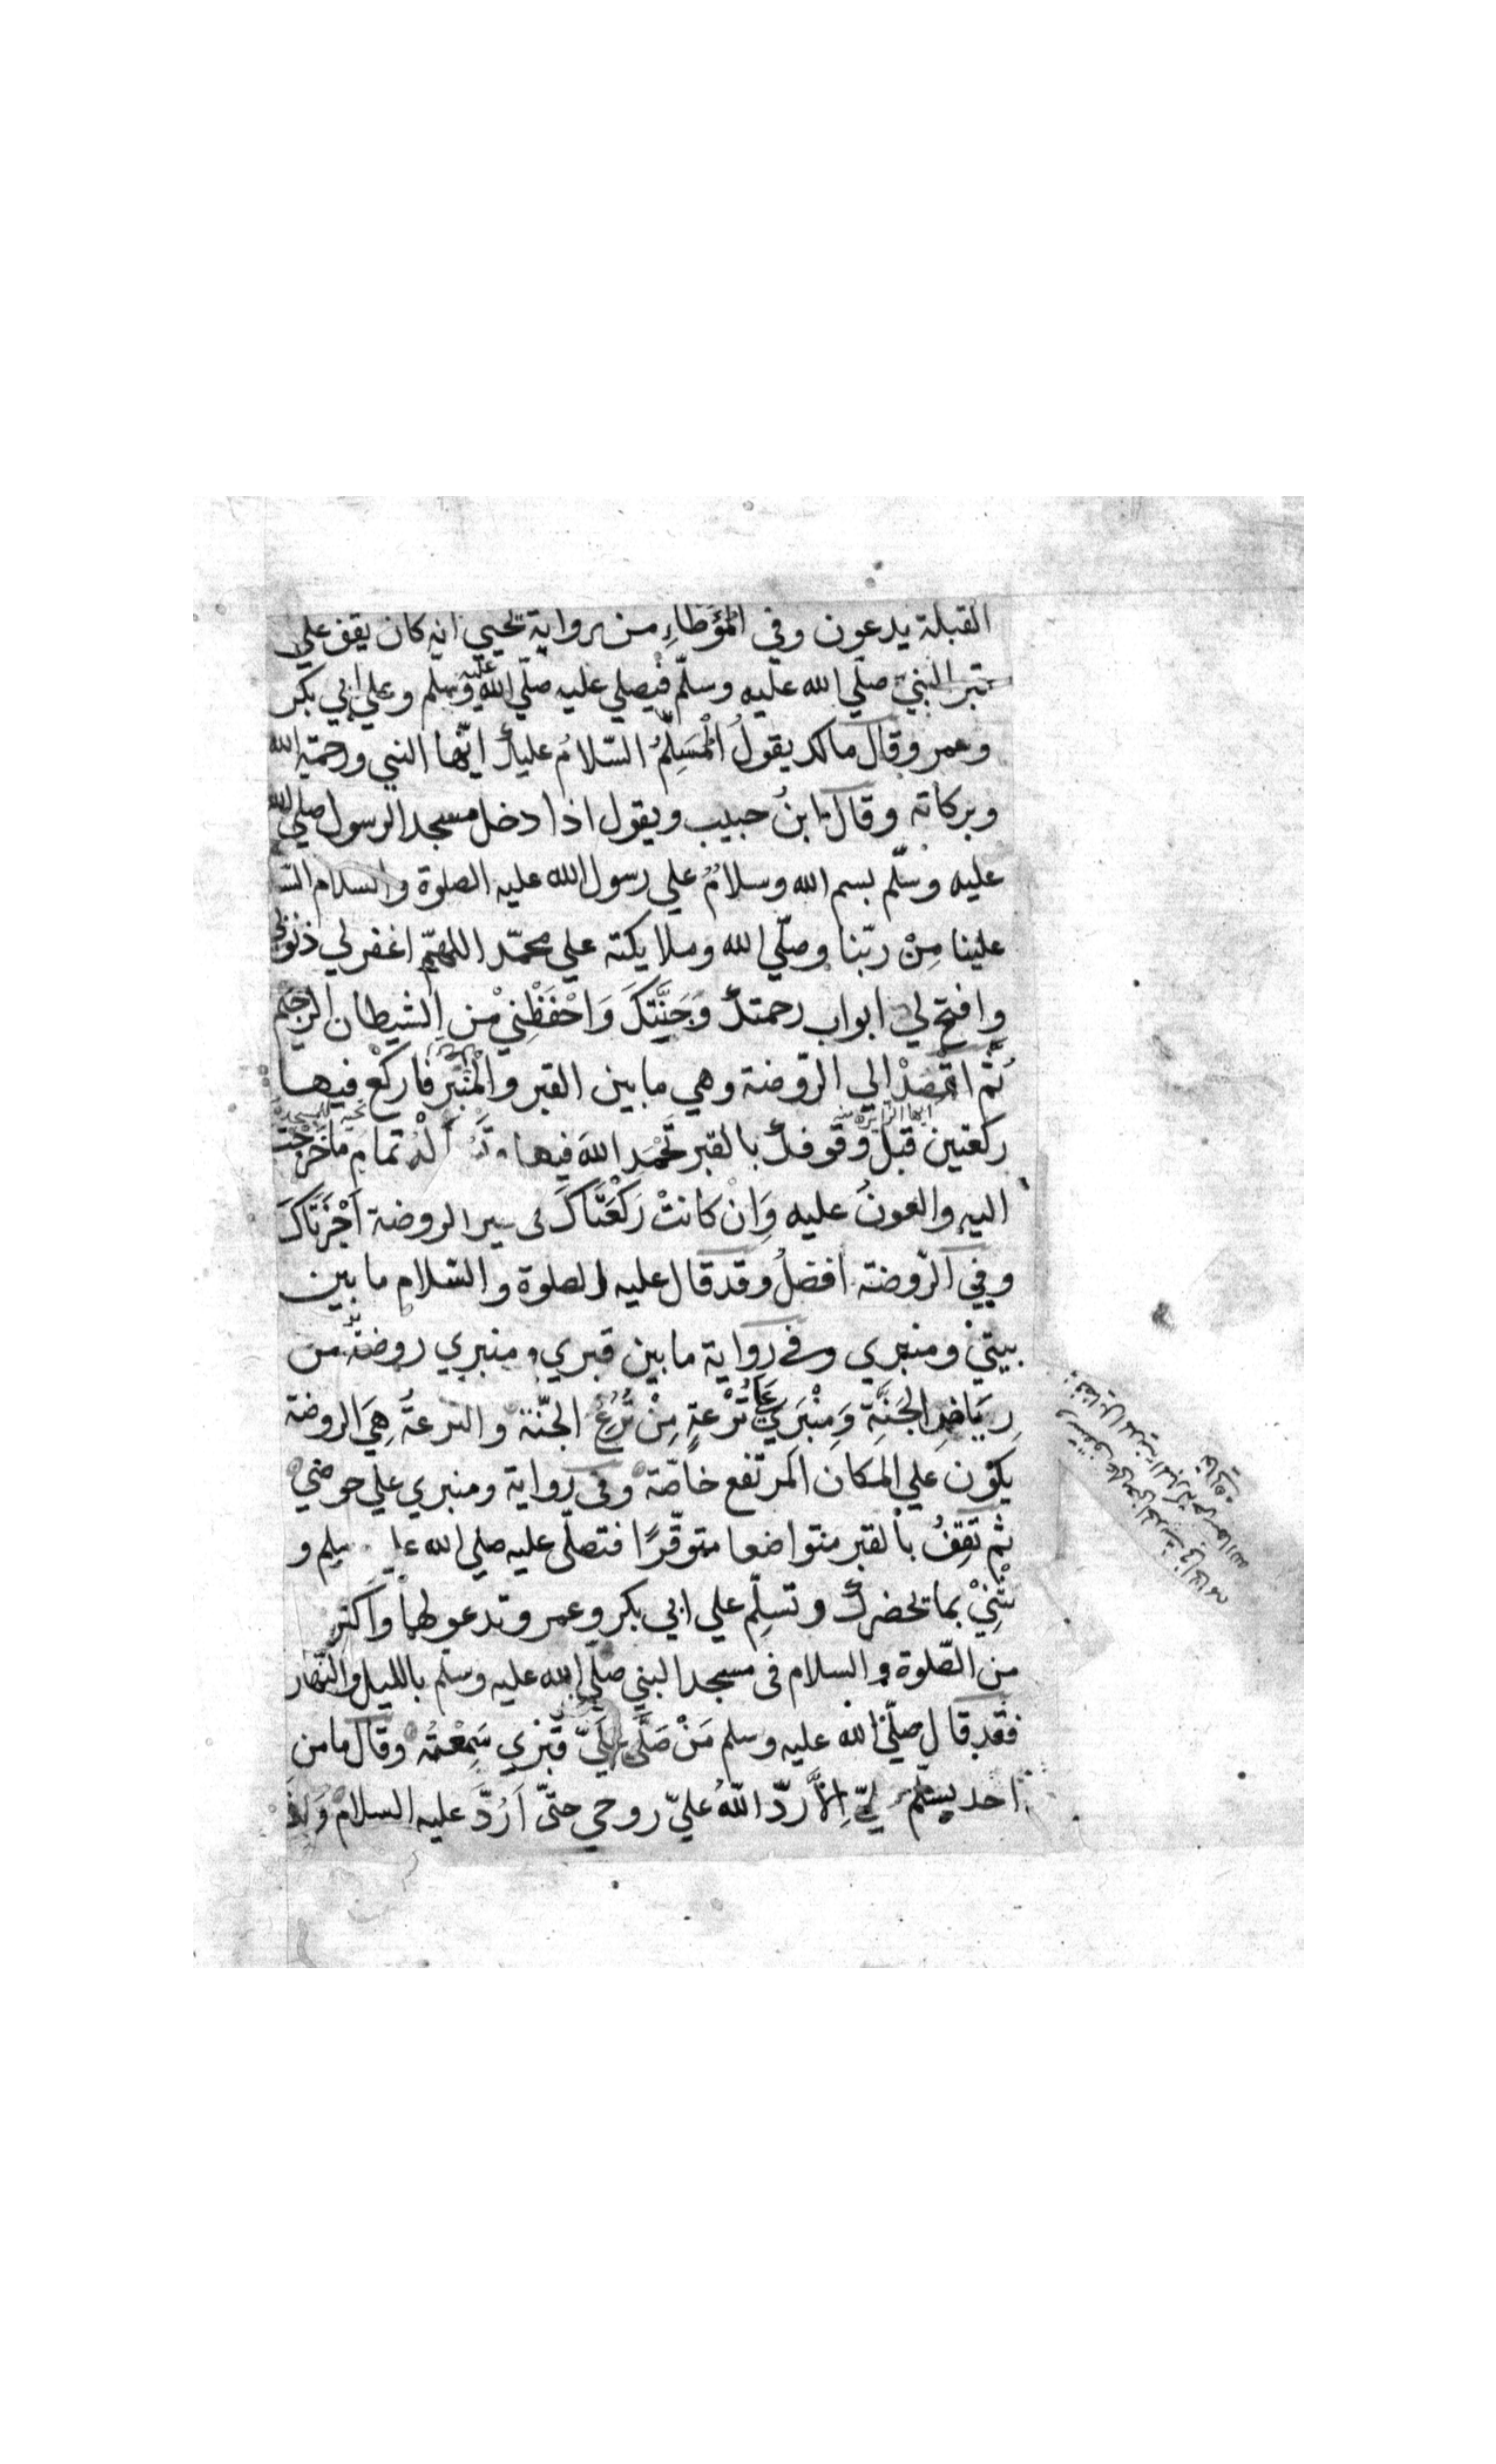 القبلة يدعون وفي المُؤَطاءِ من رواية يحيي انه كان يقف علي
قبر النبيّ صلّي الله عليه وسلّم فيصلي عليه صلّي الله عليه وسلم وعلي ابي بكر
وعمر وقال مالك يقولُ المُسَلِّمُ السّلامُ عليكَ ايّها النبي ورحمة الله
وبركاته وقال ابنُ حبيب ويقول اذا دخل مسجد الرسول صلي الله
عليه وسلّم بسم الله وسلامٌ علي رسول الله عليه الصلوة والسلام
علينا مِنْ ربّنا وصلّي الله وملايكته علي محمّد اللهمّ اغفر لي ذنوبي
وافتح لي ابواب رحمتكَ وَجَنَّتِكَ وَاحْفَظْنِيْ مْنِ الشيطان الرجيم
ثُمّ اقْصِدْ الي الرّوضة وهي ما بين القبر والْمِنْبَر فاركَعْ فيهـا
ايها الزاير منه
ركعتين قبلَ وقوفكَ بالقبر تَحْمَد اللهَ فيها تمامَ ما خَرَجْتَ
اليهِ والعونَ عليه وَاِنْ كانتْ رَكْعَتَاكَ فى الروضة اَجْزَتَاكَ
وفي الرّوضة افضلُ وقد قال عليه الصلوة والسّلام ما بين
بيتيْ ومنبري وفي رواية ما بين قبري ومنبري روضةٌ من
رِيَاضِ الجَنَّةِ وَمِنْبَرِي عَلَى تُرْعةٍ مِنْ تُرَعِ الجنّة والترعةُ هِيَ الروضة
يكوْن علي المكان المرتفع خاصّة وفى رواية ومنبري علي حوضيْ
ثم تَقِفُ بالقبر متواضعا متوقّرًا فتصلّى عليه صلي الله و
تُثْنِيْ بما يحضركَ وتسلِّم علي ابي بكر وعمر وتدعو لهما واكثر
من الصّلوة والسلام فى مسجد النبي صلي الله عليه وسلّم بالليل والنّهار
فقد قال صلّى الله عليه وسلم مَنْ صَلَّى قَبْرِي سَمِعْتُهُ وقال ما من
احد يسلّم اِلاَّ ردّ اللهُ عليّ روحي حتّى اَرُدَّ عليه السلام